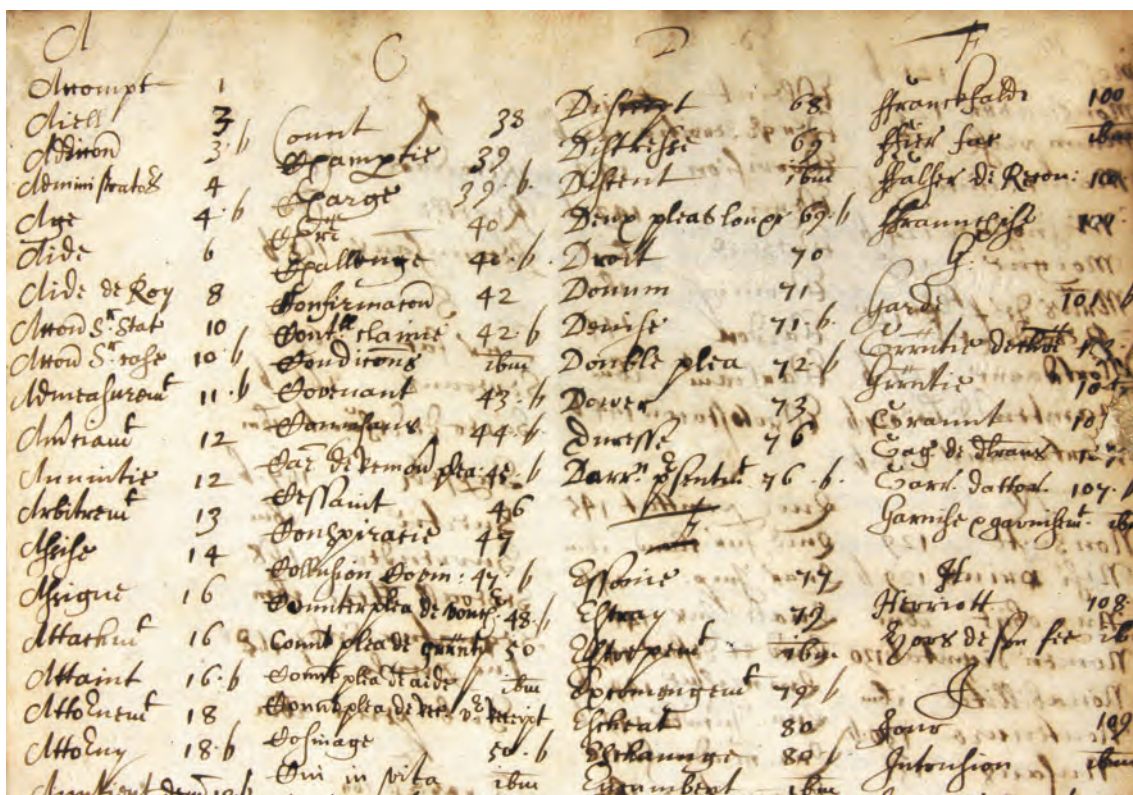 A
Accompt 1
Aiell 3
Additon 3·b
Administrators 4
Age 4·b
Aide 6
Aide de Roy 8
Accon Sr. Stat 10
Accon Sr. case 10·b
Admeasuremt 11·b
Amciamt 12
Annuitie 12
Arbitremt 13
Assise 14
Assigne 16
Attachmt 16
Attaint 16·b
Attornemt 18
Attorny 18·b
C
Count 38
Champtie 39
Charge 39·b
Chre 40
Challenge 41·b
Confirmacon 42
clame 42·b
Condicons ibm
Covenant 43·b
44·b
de demon plea: 45·b
Cessavit 46
Conspiracie 47
Collusion Covin: 47·b
Counterplea de vouch 48·b
Count plea de garrnt 50
Countplea de aide ibm
Countplea de receipt
Cosinage 50·b
Cui in vita ibm
D
68
Distresse 69
Discent ibm
Deux pleas 69·b
Droit 70
Donum 71
Devise 71·b
Double plea 72·b
Dower 73
Duresse 76
Darrn. psentmt 76·b
E
Essoine 77
Estray 79
Estrepemt ibm
Excomengemt 79·b
Escheat 80
Eschaunge 80·b
ibm
F
Franckfald 100
Fier fac ibm
Falser de Recov:
Franchise
G
Gard 101·b
Garrntie
Garrntie
Graunt
Gag. de
Garr. dattor. 107·b
Garnishe garnishemt.
H
Herriott 108
Hors de son fee ib
J
Jour 109
Intrusion ibm